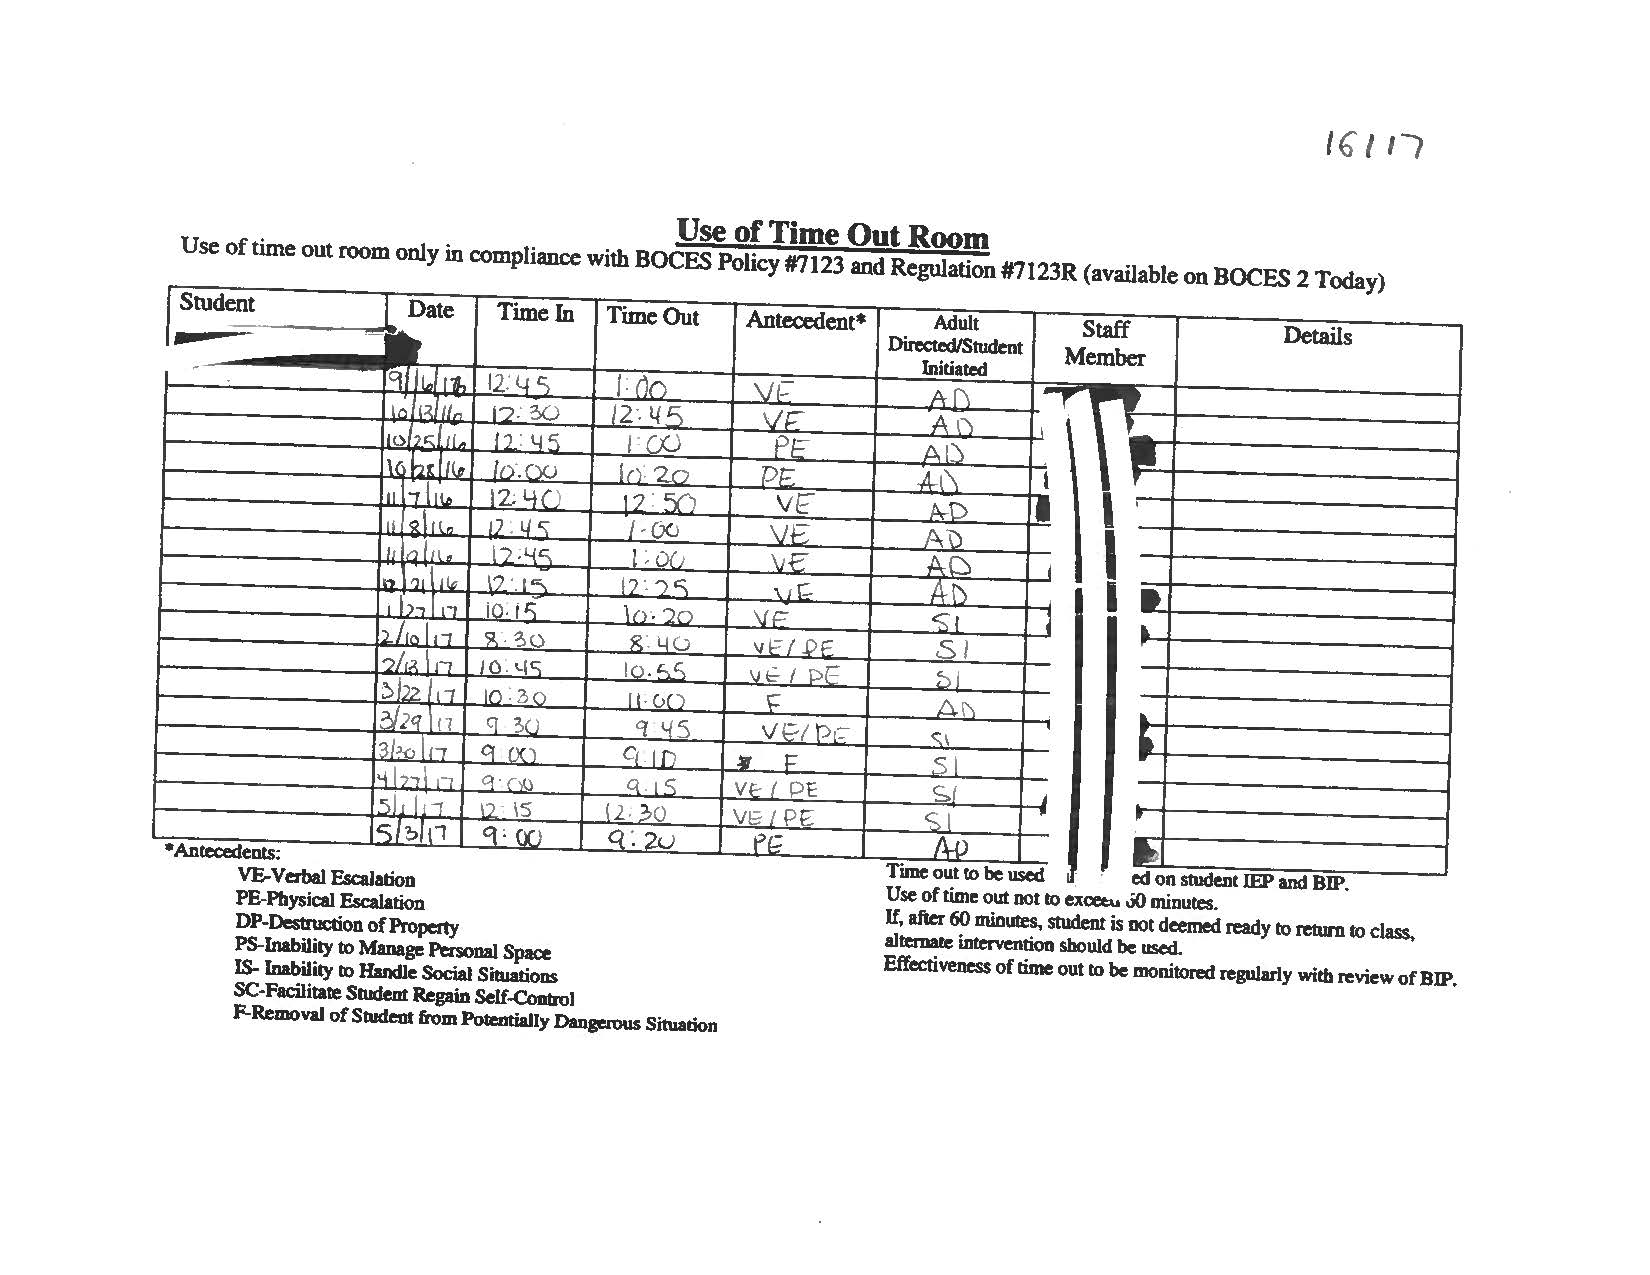 16/17
Use of Time Out Room
Use of time out room only in compliance with BOCES Policy #7123 and Regulation #7123R (available on BOCES 2 Today)
Student Date Time In Time Out Antecedent* Adult Directed/Student Initiated Staff Member Details
9/16/16 12:45 1:00 VE AD
10/13/16 12:30 12:45 VE AD
10/25/16 12:45 1:00 PE AD
10/28/16 10:00 10:20 PE AD
11/7/16 12:40 12:50 VE AD
11/8/16 12:45 1:00 VE AD
11/9/16 12:45 1:00 VE AD
12/21/16 12:15 12:25 VE AD
1/27/17 10:15 10:20 VE SI
2/10/17 8:30 8:40 VE/PE SI
2/13/17 10:45 10:55 VE/PE SI
3/22/17 10:30 11:00 F AD
3/29/17 9:30 9:45 VE/PE SI
3/30/17 9:00 9:10 F SI
4/27/17 9:00 9:15 VE/PE SI
5/1/17 12:15 12:30 VE/PE SI
5/3/17 9:00 9:20 PE AD
*Antecedents:
VE-Verbal Escalation
PE-Physical Escalation
DP-Destruction of Property
PS-Inability to Manage Personal Space
IS- Inability to Handle Social Situations
SC-Facilitate Student Regain Self-Control
F-Removal of Student from Potentially Dangerous Situation
Time out to be used ed on student IEP and BIP.
Use of time out not to exceed 60 minutes.
If, after 60 minutes, student is not deemed ready to return to class,
alternate intervention should be used.
Effectiveness of time out to be monitored regularly with review of BIP.